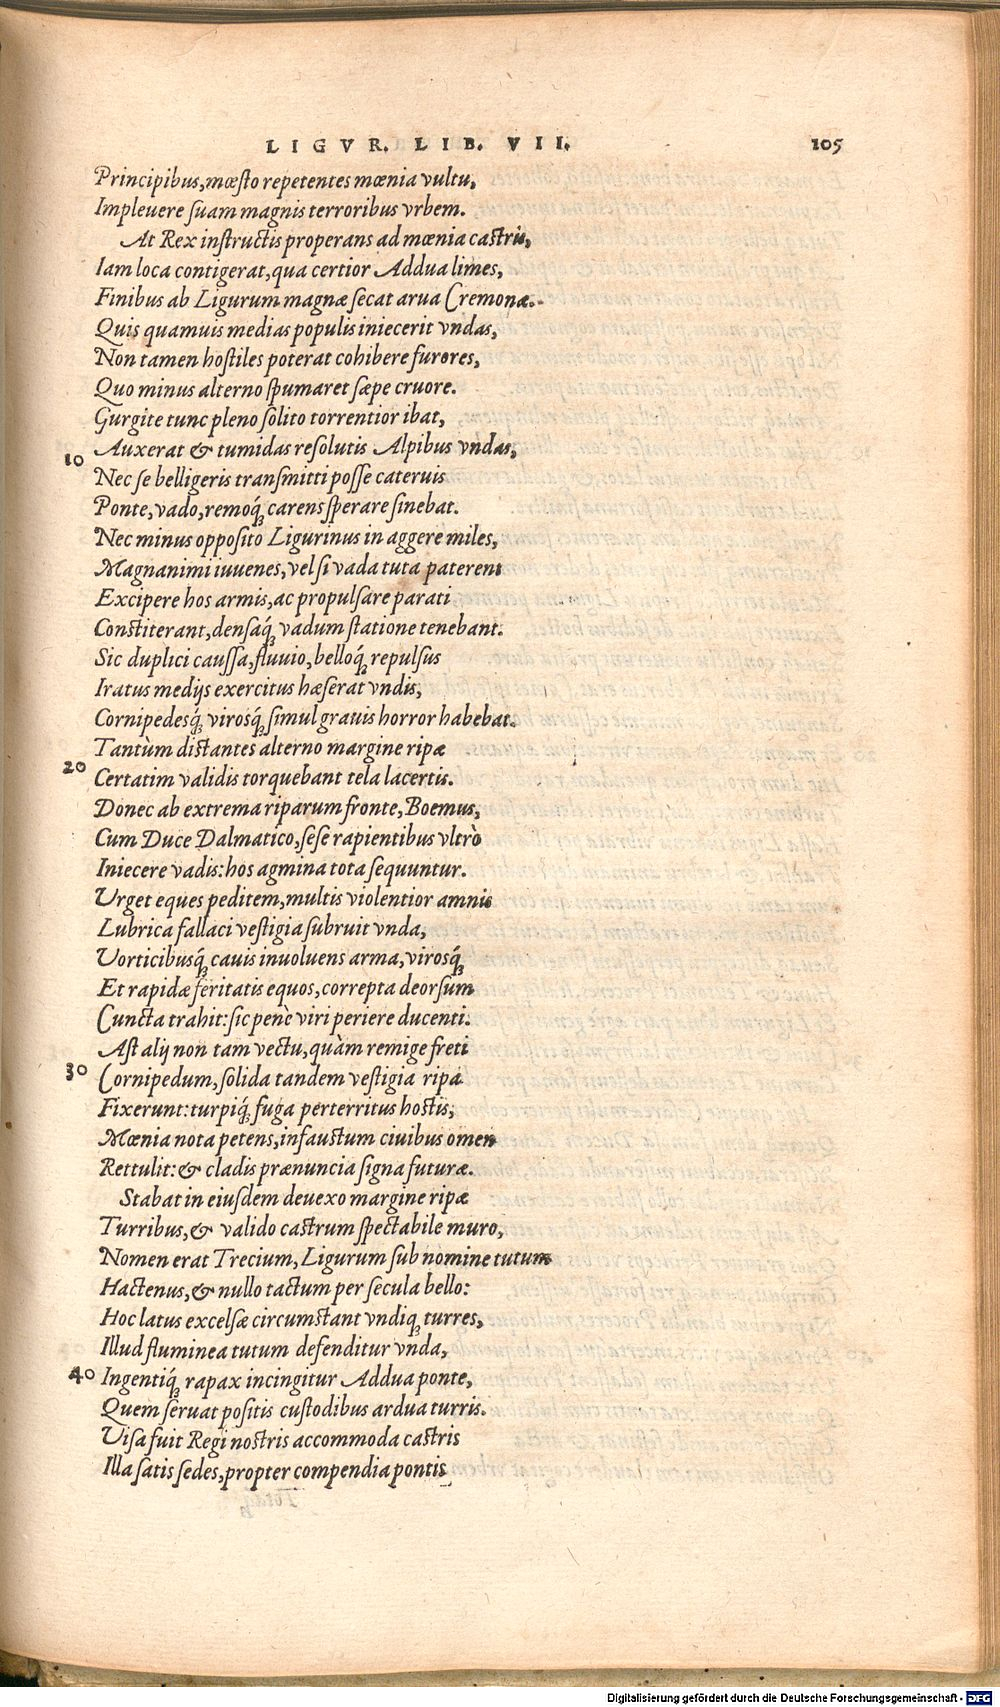 LIGVR. LIB. VII. 105
Principibus, mœsto repetentes mœnia vultu,
Impleuere suam magnis terroribus vrbem.
At Rex instructis properans ad mœnia castris,
Iam loca contigerat, qua certior Addua limes,
Finibus ab Ligurum magnæ secat arua Cremonæ.
Quis quamuis medias populis iniecerit vndas,
Non tamen hostiles poterat cohibere furores,
Quo minus alterno spumaret sæpe cruore.
Gurgite tunc pleno solito torrentior ibat,
10 Auxerat & tumidas resolutis Alpibus vndas,
Nec se belligeris transmitti posse cateruis
Ponte, vado, remoq́; carens sperare sinebat.
Nec minus opposito Ligurinus in aggere miles,
Magnanimi iuuenes, vel si vada tuta paterent
Excipere hos armis, ac propulsare parati
Constiterant, densaq́; vadum statione tenebant.
Sic duplici caussa, fluuio, belloq́; repulsus
Iratus medijs exercitus hæserat vndis,
Cornipedesq́; virosq́; simul grauis horror habebat.
Tantùm distantes alterno margine ripæ
20 Certatim validis torquebant tela lacertis.
Donec ab extrema riparum fronte, Boemus,
Cum Duce Dalmatico, sese rapientibus vltrò
Iniecere vadis: hos agmina tota sequuntur.
Urget eques peditem, multis violentior amnis
Lubrica fallaci vestigia subruit vnda,
Uorticibusq́; cauis inuoluens arma, virosq́;
Et rapidæ feritatis equos, correpta deorsum
Cuncta trahit: sic penè viri periere ducenti.
Ast alij non tam vectu, quàm remige freti
30 Cornipedum, solida tandem vestigia ripa
Fixerunt: turpiq́; fuga perterritus hostis,
Mœnia nota petens, infaustum ciuibus omen
Rettulit: & cladis prænuncia signa futuræ.
Stabat in eiusdem deuexo margine ripæ
Turribus, & valido castrum spectabile muro,
Nomen erat Trecium, Ligurum sub nomine tutum
Hactenus, & nullo tactum per secula bello:
Hoc latus excelsæ circumstant vndiq; turres,
Illud fluminea tutum defenditur vnda,
40 Ingentiq́; rapax incingitur Addua ponte,
Quem seruat positis custodibus ardua turris.
Uisa fuit Regi nostris accommoda castris
Illa satis sedes, propter compendia pontis
Digitalisierung gefördert durch die Deutsche Forschungsgemeinschaft - DFG